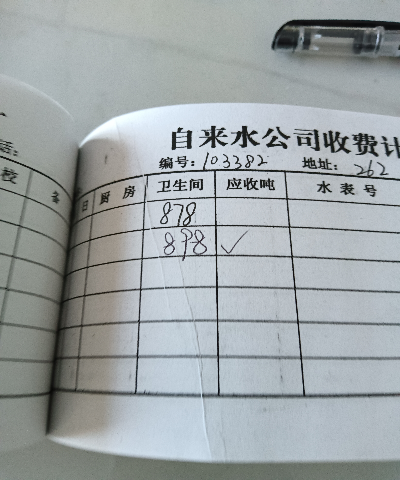 话:
自来水公司收费计
编号: 103382 地址: 262
校 备
日 厨房 卫生间 应收吨 水表号
878
898 ✓